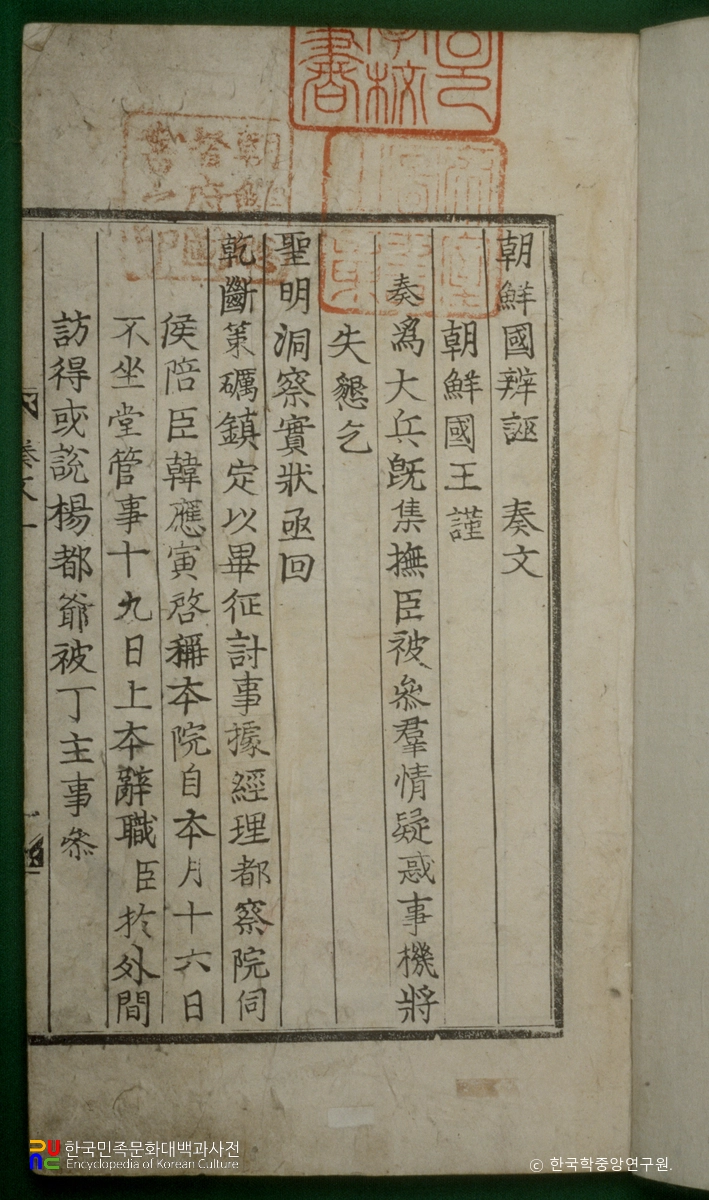 朝鮮國辨誣 奏文
朝鮮國王謹
奏爲大兵旣集撫臣被叅羣情疑惑事機將
失懇乞
聖明洞察實狀亟回
乾斷策礪鎮定以畢征討事據經理都察院伺
侯陪臣韓應寅啓稱本院自本月十六日
不坐堂管事十九日上本辭職臣扵外間
訪得或說楊都爺被丁主事叅
奏文一
한국민족문화대백과사전
Encyclopedia of Korean Culture
© 한국학중앙연구원.